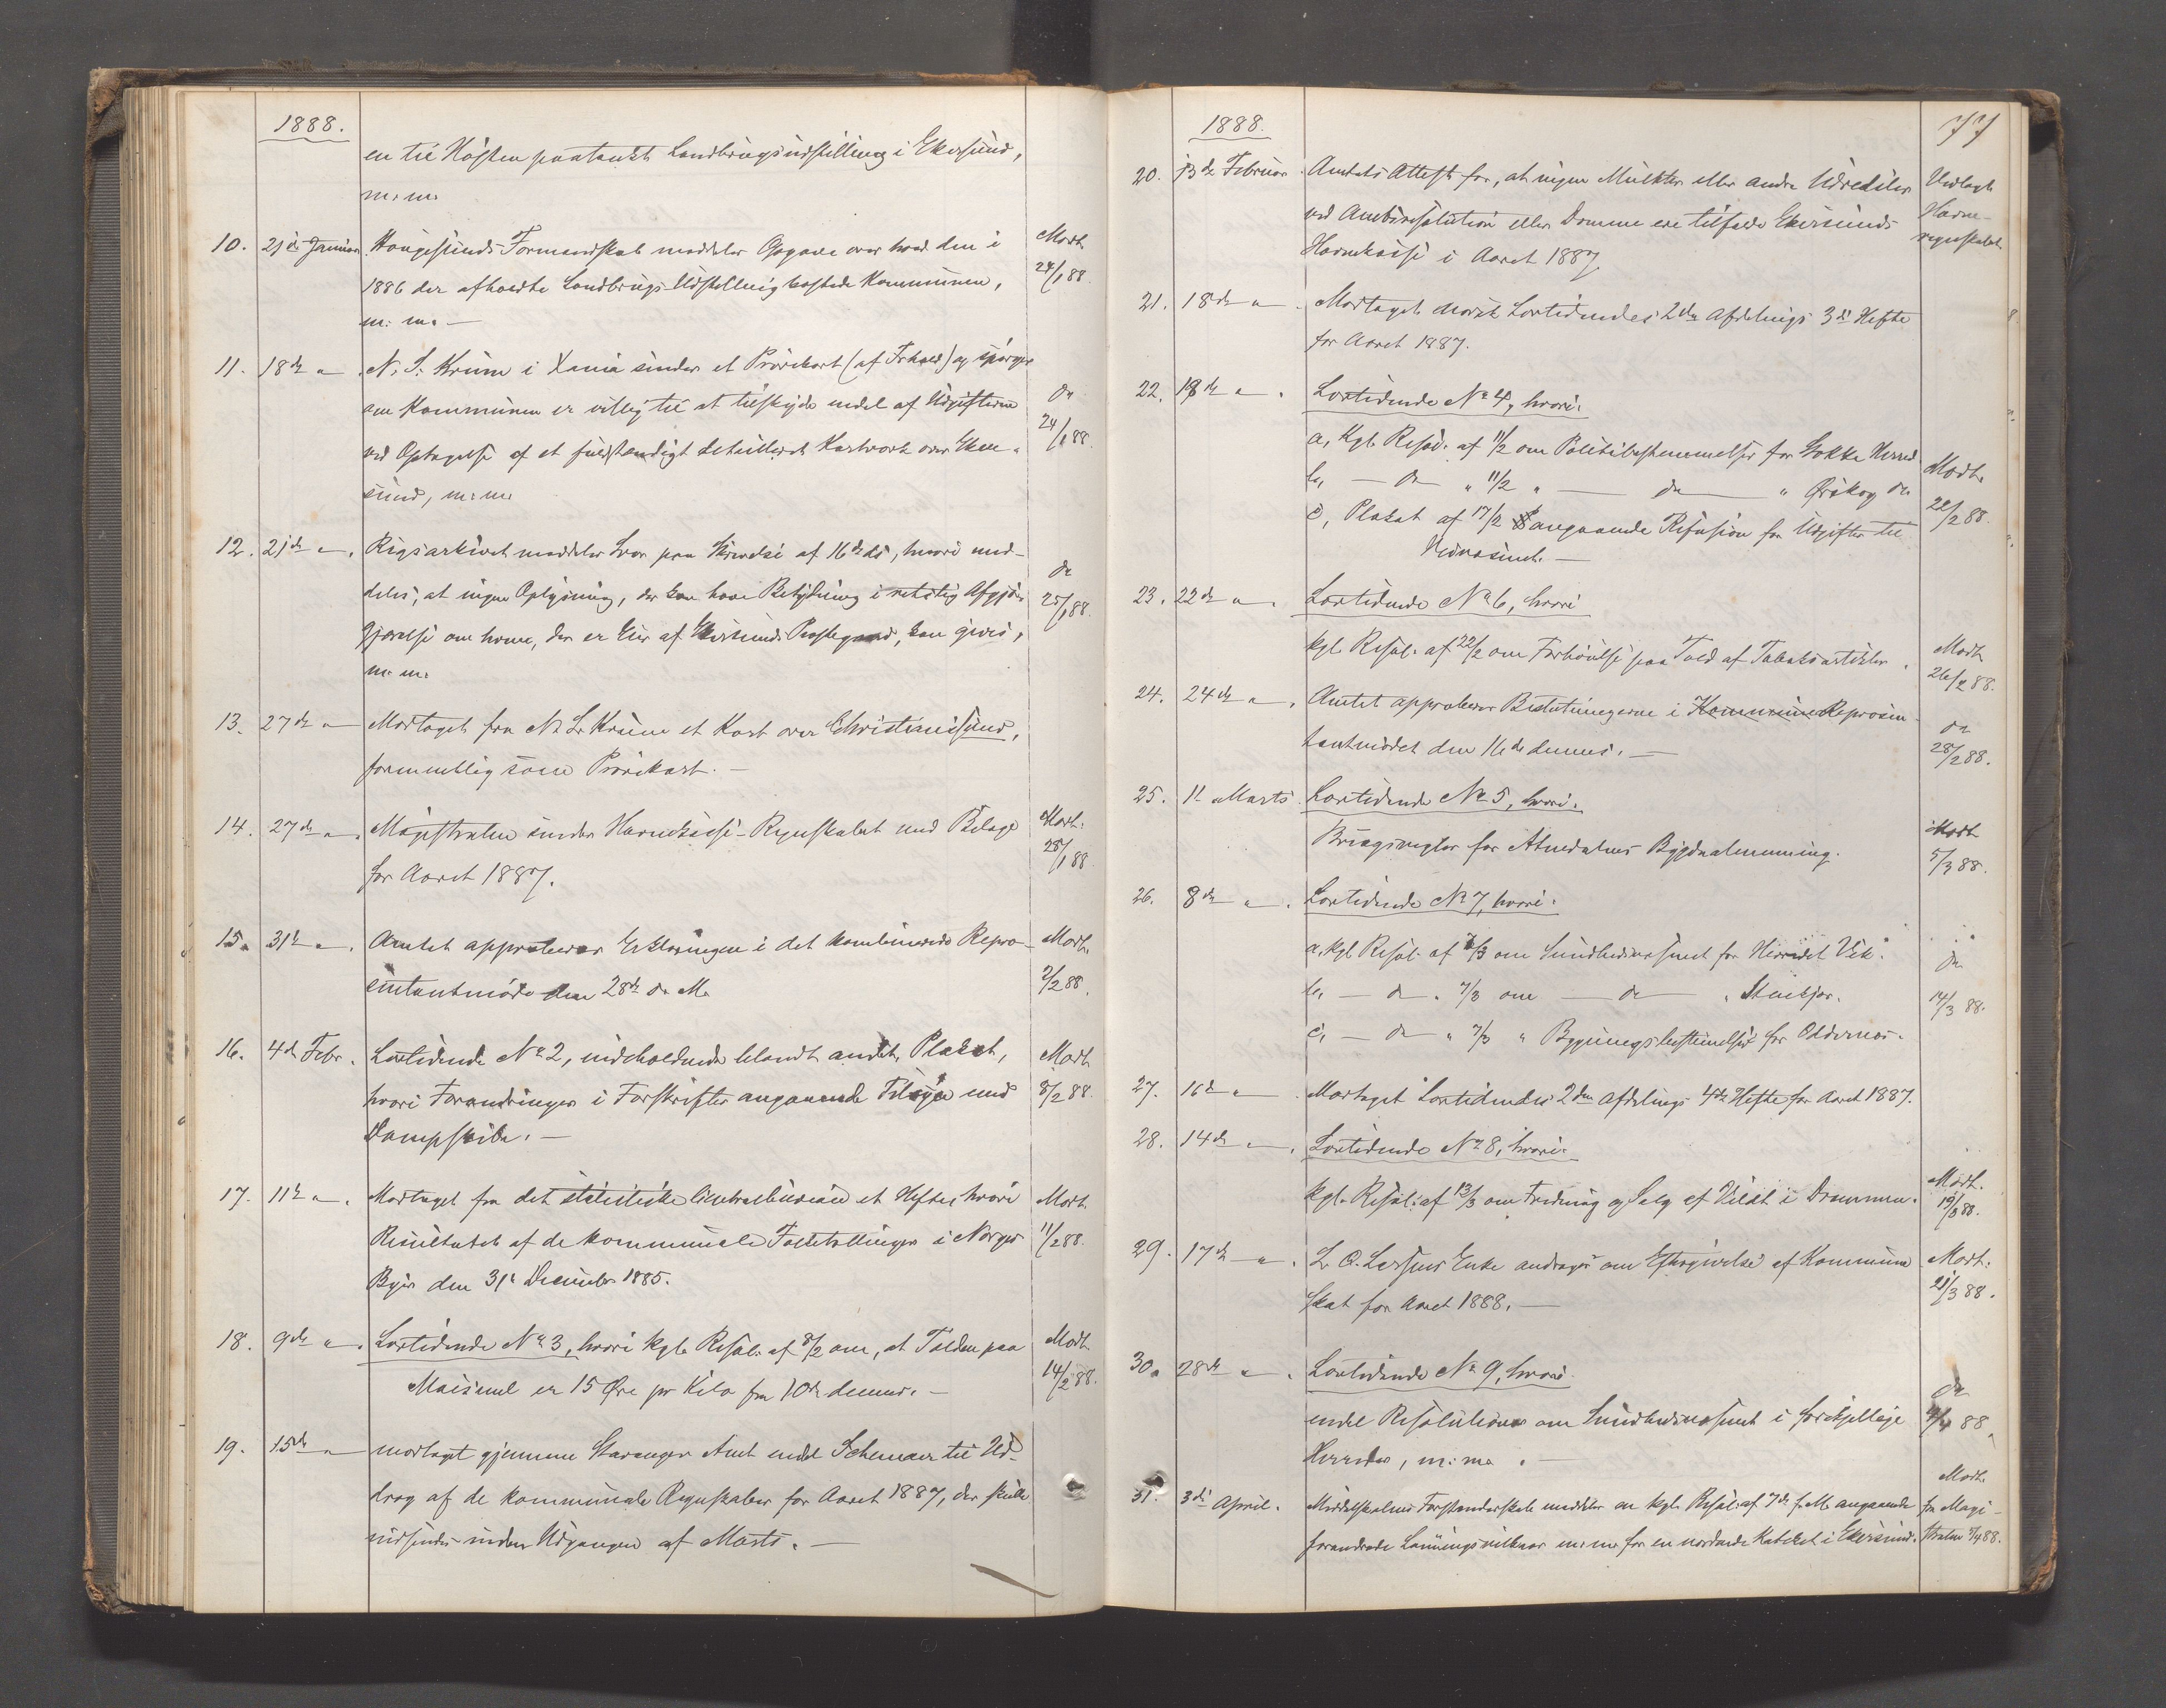 1888.
en til Høsten paatænkt Landbrugsudstilling i Ekersund,
m. m.
10. 21de Januar Haugesunds Formandskab meddeler Opgave over hvad den i Modt.
1886 der afholdte Landbrugs-Udstilling kostede Kommunen, 24/1 88
m. m. —
11. 18de " N. S. Krum i Xania sender et Prøvekart (af ) og spørger
om Kommunen er villig til at tilskyde endel af Udgifterne Do
ved Optagelse af et fuldstændigt detailleret Kartværk over Eker- 24/1 88.
sund, m. m.
12. 21de " Rigsarkivet meddeler Svar paa Skrivelse af 16de ds, hvori med-
deles, at ingen Oplysning, der kan have Betydning i retslig Afgjø- Do
gjørelse om hvem, der er Eier af Ekersunds Præstegaard, kan gives, 25/1 88.
m. m.
13. 27de " Modtaget fra N. S. Krum et Kart over Christianssund,
formentlig som Prøvekart. —
14. 27de " Magistraten sender Havnekasse-Regnskabet med Bilage Modt.
for Aaret 1887. 28/1 88
15. 31te " Amtet approberer Erklæringen i det kombinerede Repræ- Modt.
sentantmøde den 28de d. M. 2/2 88.
16. 4de Febr. Lovtidende No 2, indeholdende blandt andet, Plakat, Modt
hvori Forandringer i Forskrifter angaaende Tilsyn med 8/2 88.
Dampskibe. —
17. 11te " Modtaget fra det statistiske Centralbureau et Hefte, hvori Modt.
Resultatet af de kommunale Folketællinger i Norges 11/2 88.
Byer den 31te December 1885.
18. 9de " Lovtidende No 3, hvori kgl. Resol. af 8/2 om, at Tolden paa Modt.
Maismel er 15 Øre pr Kilo fra 10de dennes. — 14/2 88.
19. 15de " modtaget gjennem Stavanger Amt endel Schemaer til Ud-
drag af de kommunale Regnskaber for Aaret 1887, der skulle
indsendes inden Udgangen af Marts. —
1888. 77
20. 13de Februar Amtets Attest for, at ingen Mulkter eller andre Udredsler Vedlagt
ved Amtsresolution eller Domme ere tilfaldt Ekersunds Havne-
Havnekasse i Aaret 1887. regnskabet
21. 18de " Modtaget Norsk Lovtidendes 2den Afdelings 3die Hefte
for Aaret 1887.
22. 18de " Lovtidende No 4, hvori:
a, Kgl. Resol. af 11/2 om Politibestemmelser for Gokke Herred Modt.
b, — Do " 11/2 " — do — " Ørskog do 22/2 88.
c, Plakat af 17/2 angaaende Refusion for Udgifter til

23. 22de " Lovtidende No 6, hvori
kgl. Resol. af 22/2 om Forhøielse paa Told af Tobaksartikler. Modt
26/2 88.
24. 24de " Amtet approberer Beslutningerne i Kommune Repræsen- Do
tantmødet den 16de dennes. — 28/2 88.
25. 1t Marts Lovtidende No 5, hvori: Modt
Brugsregler for Aamdalens Bygdealmenning. 5/3 88.
26. 8de " Lovtidende No 7, hvori:
a. kgl. Resol. af 7/3 om Sundhedsvæsenet for Herredet Vik. Do
b, — do " 7/3 om — do — " Stenkjær. 14/3 88.
c, — do " 7/3 " Bygningsbestemmelser for Oddernes.
27. 16de " Modtaget Lovtidendes 2den Afdelings 4de Hefte for Aaret 1887.
28. 14de " Lovtidende No 8, hvori: Modt.
kgl. Resol. af 13/3 om Fredning og Salg af Vildt i Drammen. 19/3 88.
29. 17de " L. O. Larsens Enke andrager om Eftergivelse af Kommune Modt.
Skat for Aaret 1888. — 21/3 88.
30. 28de " Lovtidende No 9, hvori
endel Resolutioner om Sundhedsvæsenet i forskjellige Do
Herreder, m. m. — 4/4 88.
31. 3die April. Middelskolens Forstanderskab meddeler en kgl. Resol. af 7de f. M. angaaende Modt. fra Magi-
forandrede Lønningsvilkaar m. m. for en vordende Kateket i Ekersund. straten 7/4 88.